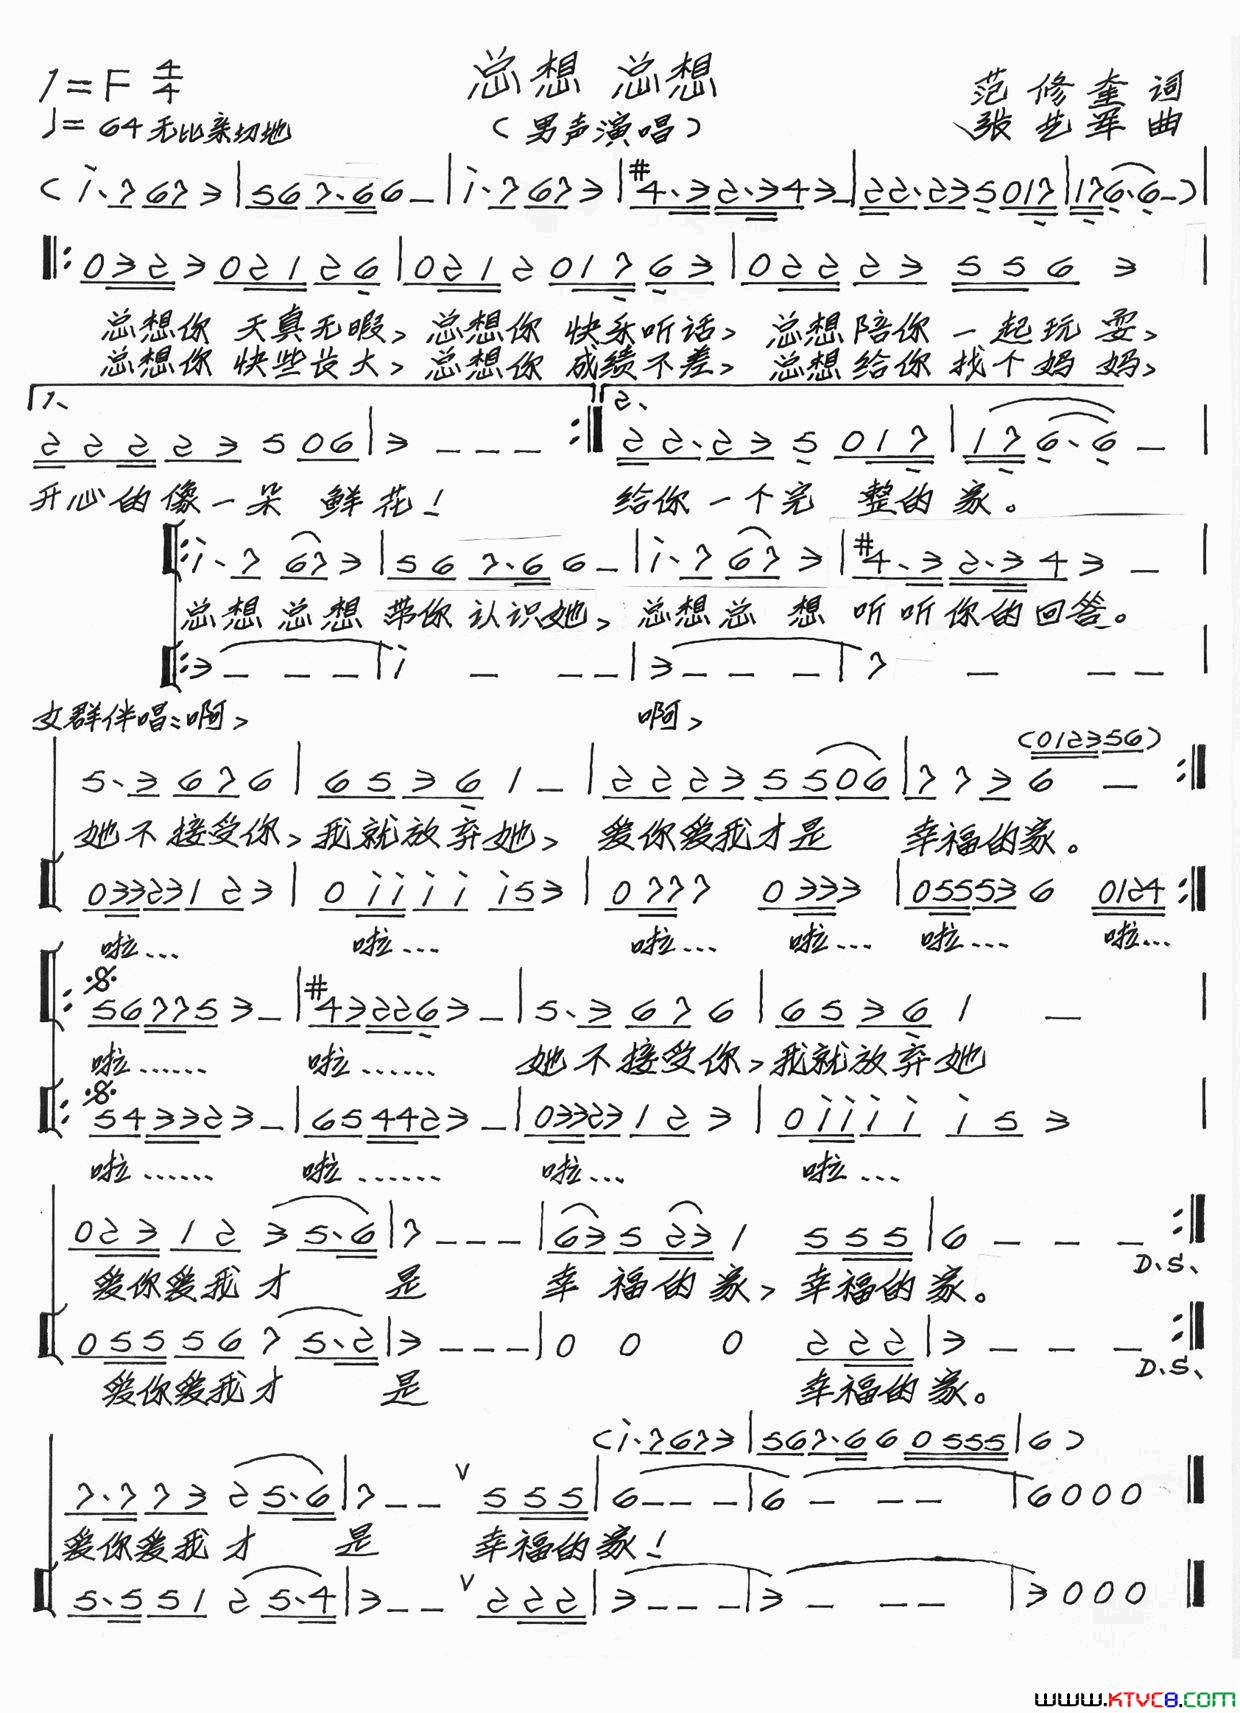 总想 总想
1=F 4/4
范修奎 词
♩=64 无比亲切地
(男声演唱)
张艺军 曲
(i·7673|567·666—|i·7673|#4·32·343—|22·235017|176·6—)|
‖:0323021 26|021 2017 63|0222 23 556 3|
总想你 天真无暇、总想你 快乐听话、总想陪你 一起玩耍、
总想你 快些长大、总想你 成绩不差、总想给你 找个妈妈、
1、 2、
22223 506|3 — — — :‖22·23 5 017|176·6 —|
开心的像一朵 鲜花! 给你一个完 整的家。
‖:i·7 673|56 7·66 6—|i·7 673|#4·32·3 43 —|
总想总想 带你认识她、总想总想 听听你的回答。
‖:3— — —|i — — —|3— — —|7 — — —|
女群伴唱:啊、 啊、
(012356)
5·3 676|65 36 1 —|222355506|7736 — :‖
她不接受你、我就放弃她、爱你爱我才是 幸福的家。
0332312 3|0iiii i53|0777 0333|055536 0124:‖
啦… 啦… 啦… 啦… 啦… 啦…
‖:567753—|#432263—|5·3 676|65 36 1 —|
啦…… 啦…… 她不接受你、我就放弃她
‖:543323—|654423—|03323123|0iiii i53|
啦…… 啦…… 啦… 啦…
02312 35·6|7— — —|635 231 555|6 — — — :‖
D.S.
爱你爱我才 是 幸福的家、幸福的家。
055567 5·2|3— — —|0 0 0 222|3 — — — :‖
D.S.
爱你爱我才 是 幸福的家。
(i·7673|567·66 6 0555|6)
7·773 25·6|7— — ∨555|6— — —|6— — —|6000‖
爱你爱我才 是 幸福的家!
5·551 25·4|3— — ∨222|3— — —|3— — —|3000‖
www.KTVC8.com